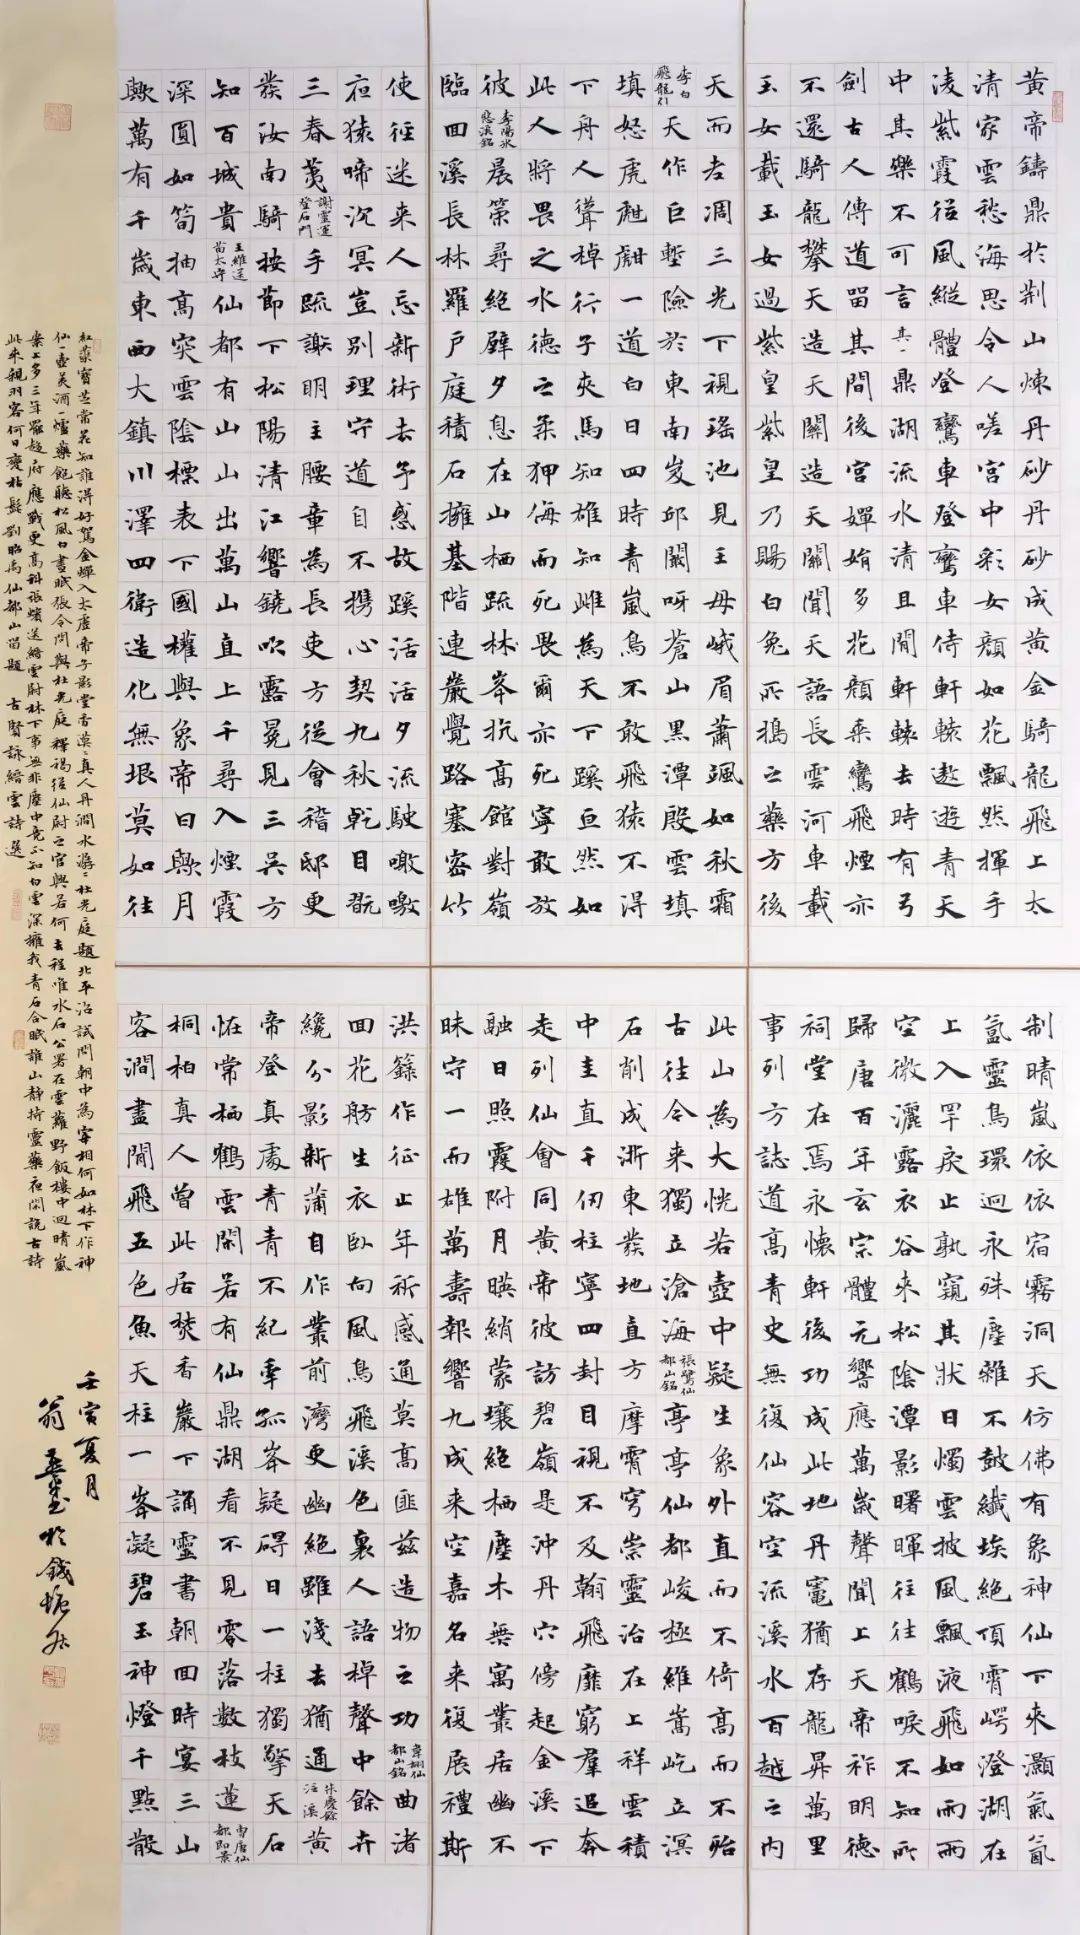 黃帝鑄鼎於荆山煉丹砂丹砂成黃金騎龍飛上太
清家雲愁海思令人嗟宮中彩女顏如花飄然揮手
凌紫霞從風縱體登鸞車登鸞車侍軒轅遨遊青天
中其樂不可言其一鼎湖流水清且閒軒轅去時有弓
劍古人傳道留其間後宮嬋娟多花顏乘鸞飛煙亦
不還騎龍攀天造天關造天關聞天語長雲河車載
玉女載玉女過紫皇紫皇乃賜白兔所搗之藥方後
天而老凋三光下視瑤池見王母峨眉蕭颯如秋霜
李白飛龍引天作巨塹險於東南岌邱闞呀蒼山黑潭殷雲填
填怒虎甝甝一道白日四時青嵐烏不敢飛猿不得
下舟人聳棹行子夾馬知雄知雌為天下蹊亘然如
此人將畏之水德之柔狎侮而死畏爾亦死寧敢放
彼李陽冰惡溪銘晨策尋絕壁夕息在山栖疏林峯抗高館對嶺
臨回溪長林羅戶庭積石擁基階連巖覺路塞密竹
使徑迷來人忘新術去子惑故蹊活活夕流駛噭噭
夜猿啼沉冥豈別理守道自不攜心契九秋乾目翫
三春荑謝靈運登石門手疏謝明主腰章為長吏方從會稽邸更
發汝南騎按節下松陽清江響鐃吹露冕見三吳方
知百城貴王維送苗太守仙都有山山出萬山直上千尋入煙霞
深圓如筍抽高突雲陰標表下國權輿象帝日與月
歟萬有千歲東西大鎮川澤四衛造化無垠莫如往
制晴嵐依依宿霧洞天仿佛有象神仙下來灝氣氤
氳靈烏環迴永殊塵雜不鼓纖埃絕頂霄崿澄湖在
上入罕戾止孰窺其狀日燭雲披風飄液飛如雨雨
空微灑露衣谷來松陰潭影曙暉往往鶴唳不知所
歸唐百年玄宗體元響應萬歲聲聞上天帝祚明德
祠堂在焉永懷軒後功成此地丹竈猶存龍昇萬里
事列方誌道高青史無復仙容空流溪水百越之内
此山為大恍若壺中疑生象外直而不倚高而不殆
古往今來獨立滄海張鷟仙都山銘亭亭仙都峻極維嵩屹立溟
石削成浙東發地直方摩霄穹崇靈治在上祥雲積
中圭直千仞柱寧四封目視不及翰飛靡窮羣追奔
走列仙會同黃帝彼訪碧嶺是沖丹穴傍起金溪下
融日照霞附月暎綃蒙壤絕栖塵木無寓叢居幽不
昧守一而雄萬壽報響九成來空嘉名來復展禮斯
洪籙作征止年祈感通莫高匪茲造物之功韋翃仙都山銘曲渚
回花舫生衣臥向風鳥飛溪色裏人語棹聲中餘卉
纔分影新蒲自作叢前灣更幽絕雖淺去猶通朱慶餘泛溪黃
帝登真處青青不紀年孤峯疑礙日一柱獨擎天石
怪常栖鶴雲閑若有仙鼎湖看不見零落數枝蓮曹唐仙都即景
桐柏真人曾此居焚香巖下誦靈書朝回時宴三山
客澗盡閒飛五色魚天柱一峯凝碧玉神燈千點散
寶芝常知誰得好駕金蟬入太虛帝子影堂香漠漠真人丹澗水濺濺杜光庭題北平沼試問朝中為宰相何如林下作神
仙一壺美酒一爐藥飽聽松風白晝眠張令問與杜光庭釋褐從仙尉之官興若何去程唯水石公署在雲蘿野飯樓中迴晴嵐
案上多三年罷趨府應戰更高科張蠙送縉雲尉林下事無非塵中竟不知白雲深擁我青石合眠誰山靜持靈藥夜閑說古詩
此來親羽客何日變枯髭劉昭禹仙都山留題 古賢詠縉雲詩選
壬寅夏月
翁 於錢塘